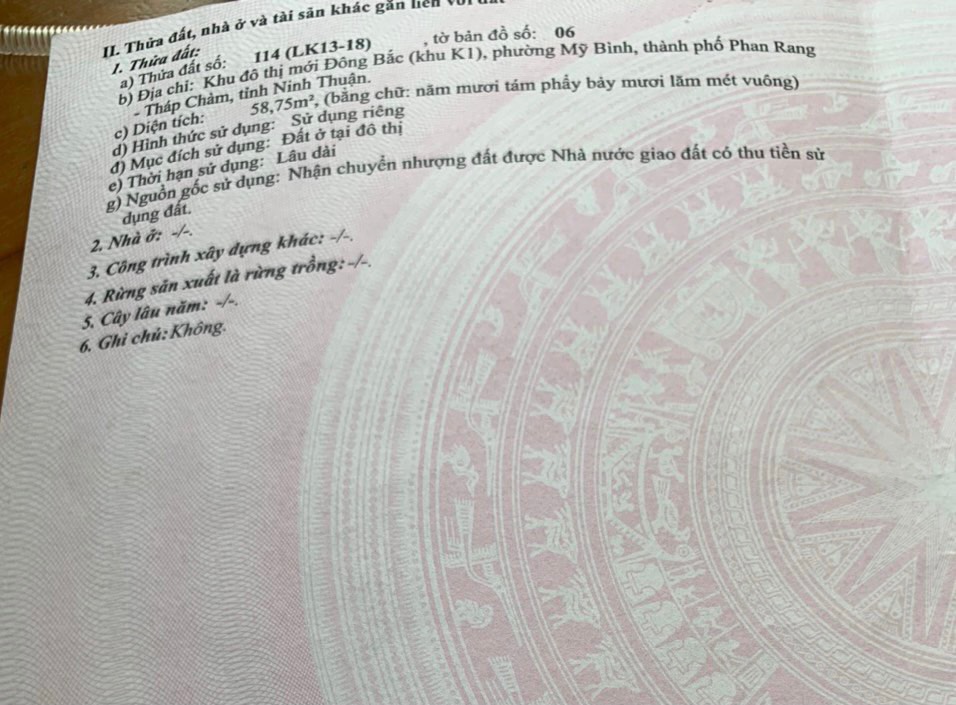 II. Thửa đất, nhà ở và tài sản khác gắn liền với
1. Thửa đất:
a) Thửa đất số: 114 (LK13-18) , tờ bản đồ số: 06
b) Địa chỉ: Khu đô thị mới Đông Bắc (khu K1), phường Mỹ Bình, thành phố Phan Rang
- Tháp Chàm, tỉnh Ninh Thuận.
c) Diện tích: 58,75m², (bằng chữ: năm mươi tám phẩy bảy mươi lăm mét vuông)
d) Hình thức sử dụng: Sử dụng riêng
đ) Mục đích sử dụng: Đất ở tại đô thị
e) Thời hạn sử dụng: Lâu dài
g) Nguồn gốc sử dụng: Nhận chuyển nhượng đất được Nhà nước giao đất có thu tiền sử
dụng đất.
2. Nhà ở: -/-.
3. Công trình xây dựng khác: -/-.
4. Rừng sản xuất là rừng trồng: -/-.
5. Cây lâu năm: -/-.
6. Ghi chú: Không.